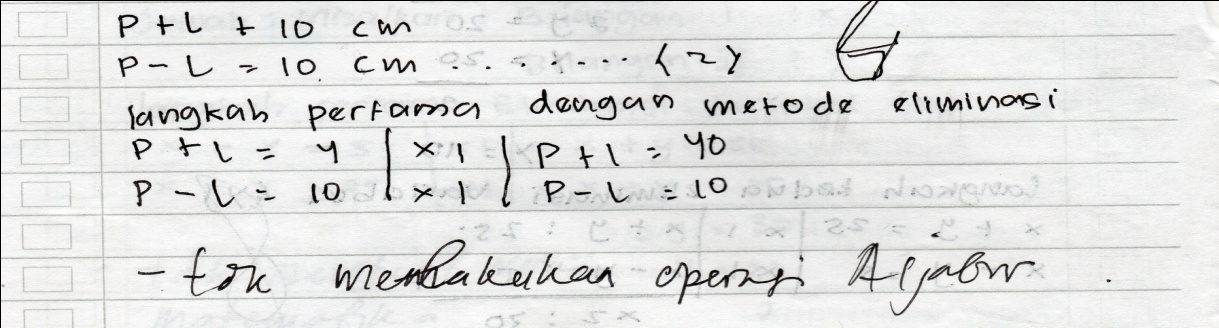 P + L + 10 cm
P - L = 10 cm ........ (2)
langkah pertama dengan metode eliminasi
P + L = 4 | x 1 | P + l = 40
P - L = 10 | x 1 | P - L = 10
- tdk melakukan operasi Aljabar.